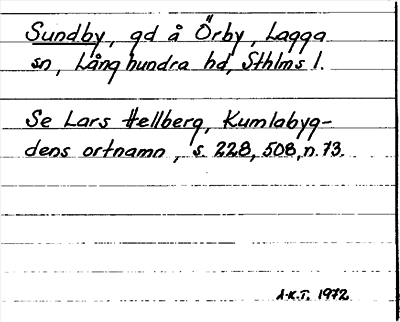 Sundby, gd å Örby, Lagga
sn, Långhundra hd, Sthlms l.
Se Lars Hellberg, Kumlabyg-
dens ortnamn, s. 228, 508, n. 73.
A-K.T. 1972